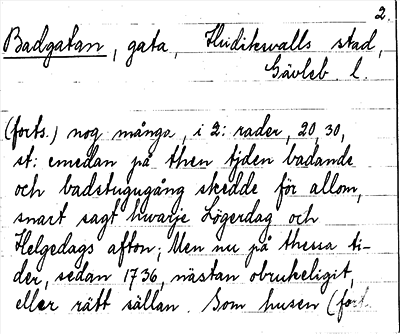 2.
Badgatan, gata, Hudiksvalls stad,
Gävleb. l.
(forts.) nog många, i 2: rader, 20, 30,
st: emedan på then tjden badande
och badstugugång skedde för allom,
snart sagt hwarje Lögerdag och
Helgedags afton; Men nu på thessa ti-
der, sedan 1736, nästan obrukeligit,
eller rätt sällan. Som husen (fort.